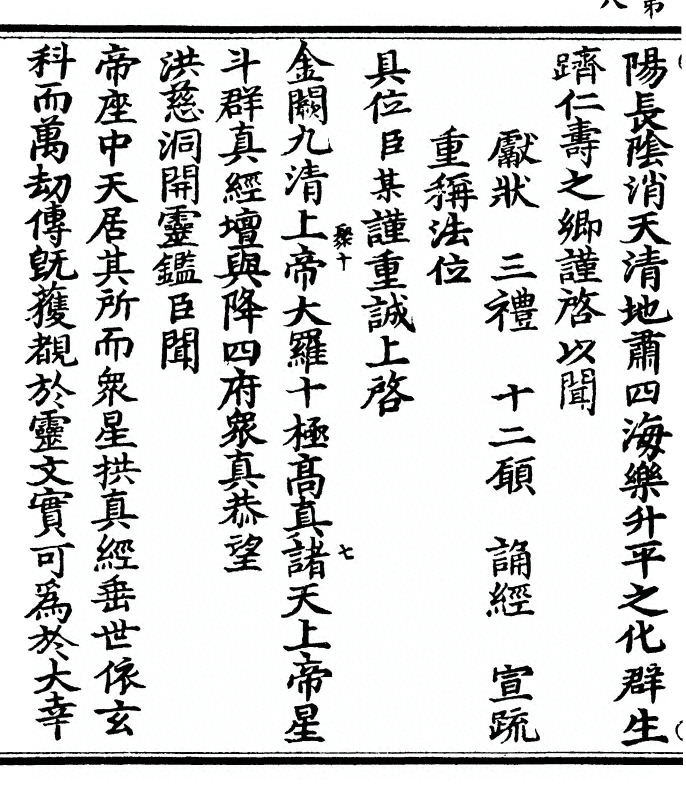 陽長陰消天清地肅四海樂升平之化群生
躋仁壽之鄉謹啓以聞
獻狀　三禮　十二願　誦經　宣䟽
重稱法位
具位臣某謹重誠上啓
金闕九清上帝大羅十極髙真諸天上帝星
斗群真經壇與降四府衆真恭望
洪慈洞開靈鑑臣聞
帝座中天居其所而衆星拱真經垂世依玄
科而萬劫傳旣獲覩於靈文實可爲於大幸
聚十
七